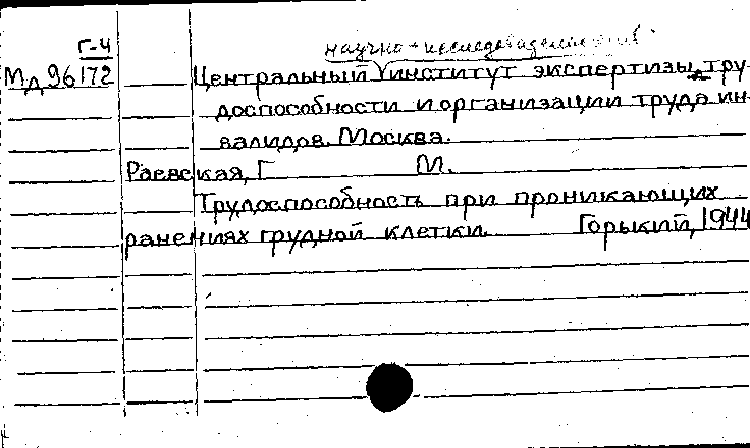 Г-4
научно-исследовательский
Мд96172 Центральный институт экспертизы тру-
доспособности и организации труда ин-
валидов. Москва.
Раевская, Г М.
Трудоспособность при проникающих
ранениях грудной клетки. Горький, 1944